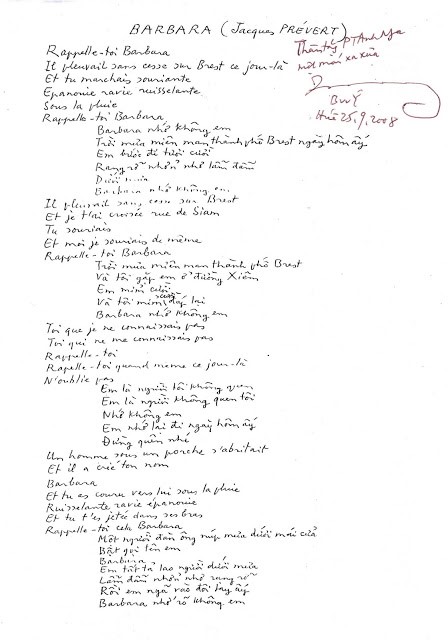 BARBARA (Jacques PRÉVERT)
Thân PTAnh Nga
một mai xa xưa
Bửu Ý
Huế 25.9.2008
Rappelle-toi Barbara
Il pleuvait sans cesse sur Brest ce jour-là
Et tu marchais souriante
Epanouie ravie ruisselante
Sous la pluie
Rappelle-toi Barbara
Barbara nhớ không em
Trời mưa miên man thành phố Brest ngày hôm ấy
Em bước đi tươi cười
Rạng rỡ nhởn nhơ lẫm đẫm
Dưới mưa
Barbara nhớ không em
Il pleuvait sans cesse sur Brest
Et je t'ai croisée rue de Siam
Tu souriais
Et moi je souriais de même
Rappelle-toi Barbara
Trời mưa miên man thành phố Brest
Và tôi gặp em ở đường Xiêm
Em mỉm cười
Và tôi mỉm cười đáp lại
Barbara nhớ không em
Toi que je ne connaissais pas
Toi qui ne me connaissais pas
Rappelle-toi
Rappelle-toi quand meme ce jour-là
N'oublie pas
Em là người tôi không quen
Em là người không quen tôi
Nhớ không em
Em nhớ lại đi ngày hôm ấy
Đừng quên nhé
Un homme sous un porche s'abritait
Et il a crié ton nom
Barbara
Et tu as couru vers lui sous la pluie
Ruisselante ravie épanouie
Et tu t'es jetée dans ses bras
Rappelle-toi cela Barbara
Một người đàn ông núp mưa dưới mái cửa
Bật gọi tên em
Barbara
Em tất tả lao người dưới mưa
Lẫm đẫm nhởn nhơ rạng rỡ
Rồi em ngã vào đôi tay ấy
Barbara nhớ rõ không em